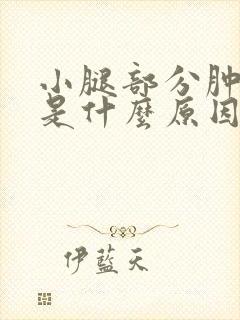 小腿部分肿
是什麽原因
伊蓝天